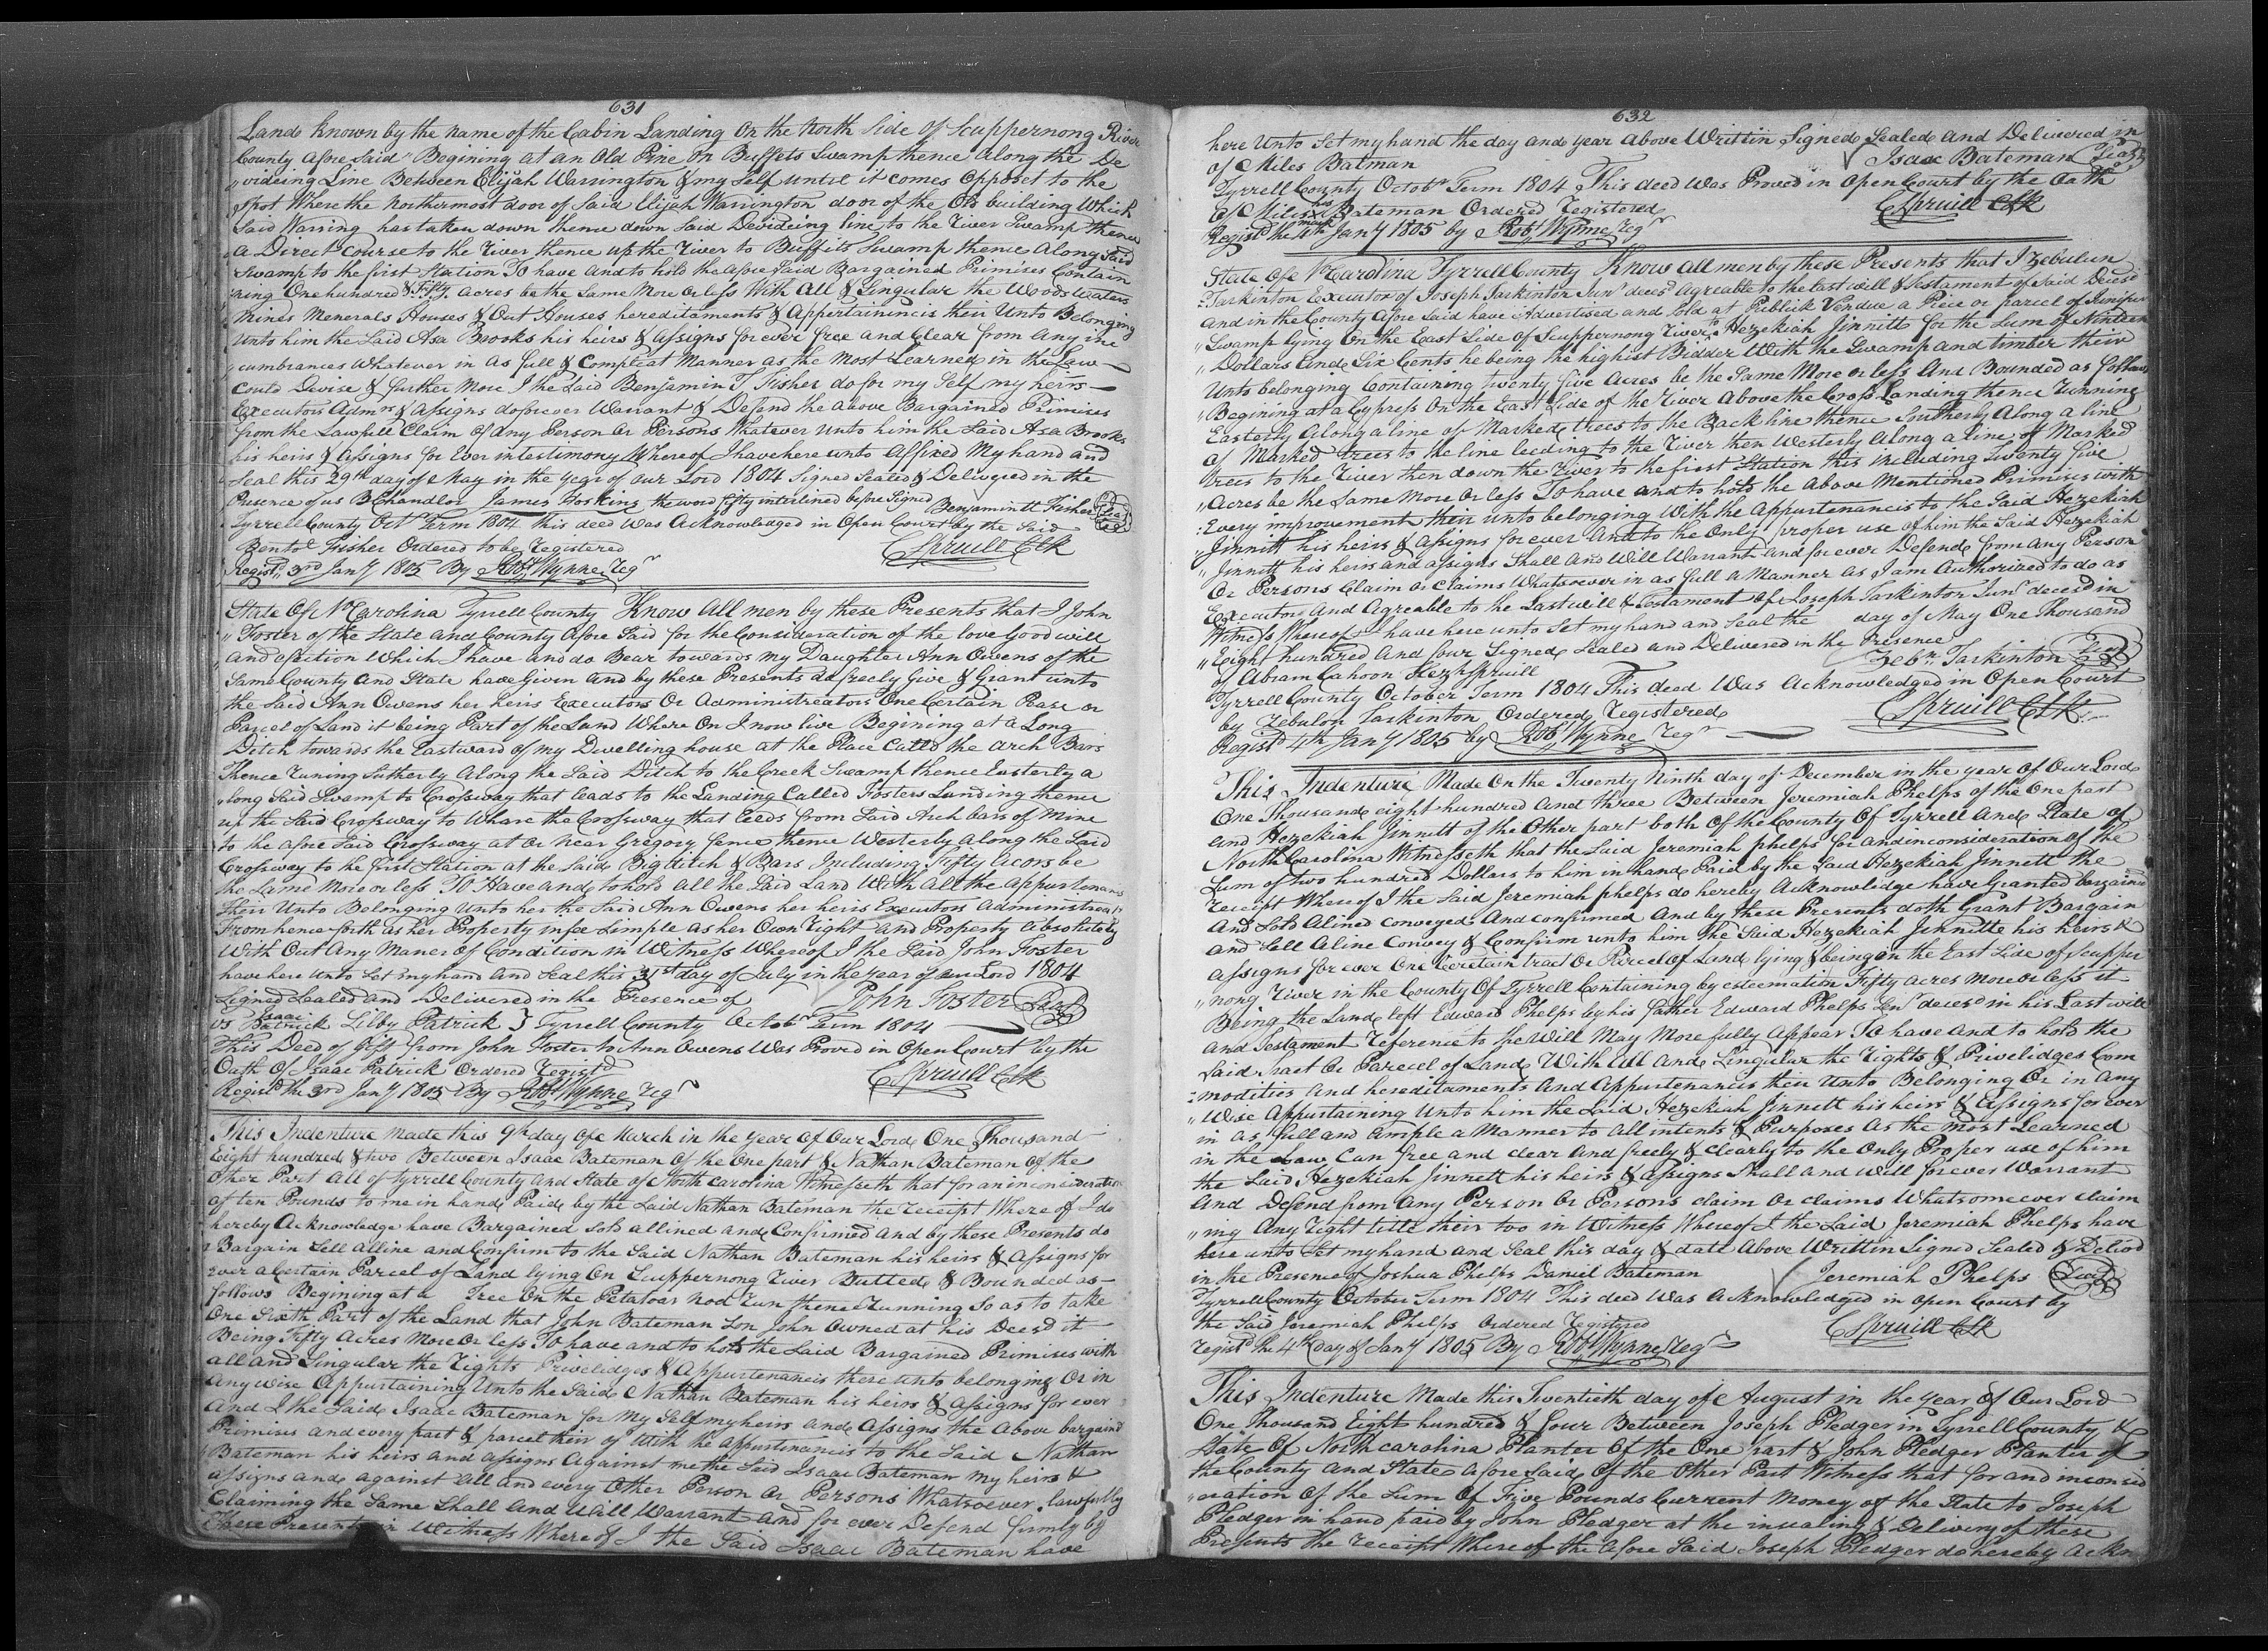 631
Lands known by the name of the Cabin Landing On the North Side of Scuppernong River
County afore Said Begining at an Old Pine On Buffets Swamp thence along the De
videing Line Between Elijah Warrington & my Self until it comes Opposet to the
Spot Where the Northermost door of Said Elijah Warrington door of the Old building Which
Said Warring has taken down thence down Said Devideing line to the River Swamp thence
a Direct course to the River thence up the River to Buffits Swamp thence along Said
Swamp to the first Station To have and to hold the afore Said Bargained Primises Contain
ning One hundred & Fifty acres be the Same More or less With All & Singular the Woods Waters
Mines Menerals Houses & Out Houses hereditaments & Appertainincis their Unto Belonging
Unto him the Said Asa Brooks his heirs & assigns for ever free and Clear from any in
cumbrances Whatever in as full & Compleat Manner as the Most Learned in the Law
Could Devise & further More I the Said Benjamin T Fisher do for my Self my heirs
Executors Admrs & assigns do forever Warrant & Defend the above Bargained Primises
from the Lawfull Claim of any Person or Persons Whatever Unto him the Said Asa Brooks
his heris & assigns for Ever in testimony Whereof I have here unto affixed My hand and
Seal this 29th day of May in the year of our Lord 1804 Signed Sealed & Delivered in the
Presence of us B Chandler James Hoskins the word fifty interlined before Signed Benjamin T Fisher Seal
Tyrrell County Octr Term 1804 This deed Was Acknowledged in Open Court by the Said
Benj Fisher Ordered to be Registered C Spruill Clk
Registd 3rd Jany 1805 By Robt Wynne Regr
State Of N Carolina Tyrrell County Know all men by these Presents that I John
Foster of the State and County afore Said for the Consideration of the love Good will
and afection Which I have and do Bear towards my Daughter Ann Owens of the
Same County and State have Given and by these Presents do freely Give & Grant unto
the Said Ann Owens her heirs Executors Or Administreators One Certain Pease or
Parcel of Land it being Part of the Land Where On I now live Begining at a Long
Ditch towards the Eastward of my Dwelling house at the Place Calld the Arch Bars
Thence Runing Sutherly along the Said Ditch to the Creek Swamp thence Easterly a
long Said Swamp to Crossway that leads to the Landing Called Fosters Landing thence
up the Said Crossway to Whare the Crossway that Leeds from Said Arch bars of Mine
to the afore Said Crossway at or near Gregory fence thence Westerly along the Said
Crossway to the first Station at the Said Big ditch & Bars Including Fifty Acors be
the Same More or less To Have and to hold all the Said Land With all the appurtenancs
their Unto Belonging unto her the Said Ann Owens her heirs Executors administreators
From hence forth as her Property in fee Simple as her Own Right and Property absolutely
With Out Any Maner of Condition in Witness Whereof I the Said John Foster
have here Unto Set my hand and Seal this 31st day of July in the year of our Lord 1804
Signed Sealed and Delivered in the Presence of John Foster Seal
us Isaac Patrick Libby Patrick } Tyrrell County Octobr Term 1804
This Deed of Gift from John Foster to Ann Owens Was Proved in Open Court by the
Oath Of Isaac Patrick Ordered Registd C Spruill Clk
Registd the 3rd Jany 1805 By Robt Wynne Regr
This Indenture made this 9th day of March in the Year of Our Lord One Thousand
Eight hundred & two Between Isaac Bateman Of the One part & Nathan Bateman of the
Other Part all of Tyrrell County and State of North Carolina Witnesseth that for an in consideration
of ten Pounds to me in hand Paid by the Said Nathan Bateman the receipt Where of I do
hereby Acknowledge have Bargained Sold allined and Confirmed and by these Presents do
Bargain Sell alline and Confirm to the Said Nathan Bateman his heirs & assigns for
ever a Certain Parcel of Land lying On Scuppernong River Butted & Bounded as
follows Begining at a Tree On the Petatoes Run thence Running So as to take
One Sixth Part of the Land that John Bateman Son John Owned at his Deced it
Being Fifty Acres More Or less To have and to hold the Said Bargained Primises with
all and Singular the Rights Priveledges & Appurtenancis there unto belonging Or in
any wise Appurtaining Unto he Said Nathan Bateman his heirs & assigns for ever
And I the Said Isaac Bateman for My Self my heirs and assigns the Above bargaind
Primises and every part & parcel their of With the appurtenancis to the Said Nathan
Bateman his heirs and assigns against me the Said Isaac Bateman my heirs &
assigns and against all and every Other Person Or Persons Whatsoever lawfully
Claiming the Same Shall and Will Warrant and for ever Defend firmly by
These Presents in Witness Where of I the Said Isaac Bateman have
632
here Unto Set my hand the day and year above Writtin Signed Sealed and Delivered in
of Miles Batman Isaac Bateman Seal
Tyrrell County Octobr Term 1804 This deed Was Proved in Open Court by the Oath
of Miles his x mark Bateman Ordered Registered C Spruill Clk
Registd the 4th Jany 1805 by Robt Wynne Regr
State Of N Carolina Tyrrell County Know all men by these Presents that I Zebulun
Tarkinton Executor of Joseph Tarkinton Junr decesd agreable to the last will & Testament of Said Decesd
and in the County afore Said have Advertised and Sold at Publick Vendue a Piece or parcel of Juniper
Swamp lying On the East Side of Scuppernong River to Hezekiah Jinnitt for the Sum of Nineteen
Dollars and Six Cents he being the highest Bidder With the Swamp and timber their
Unto belonging Containing twenty five acres be the Same More or less And Bounded as follows
Begining at a Cypress On the East Side of the River above the Cross Landing thence Running
Easterly along a line of Marked trees to the Back line thence Sutherly along a line
of Marked trees to the line leeding to the River then Westerly along a line of Marked
trees to the River then down the River to the first Station this including Twenty five
Acres be the Same More Or less To have and to hold the above Mentioned Primises with
Every improvement their unto belonging With the Appurtenancis to the Said Hezekiah
Jinnitt his heirs & assigns for ever and to the Only proper use of him the Said Hezekiah
Jinnett his heirs and assigns Shall and Will Warrant and for ever Defend from any Person
Or Persons Claim or Claims Whatsoever in as full a Manner as I am Authorized to do as
Executor and Agreable to the Last will & Testament of Joseph Tarkinton Junr decesd in
Witness Whereof I have here unto Set my hand and Seal the day of May One Thousand
Eight hundred and four Signed Sealed and Delivered in the Presence
of Abram Cahoon Hezh Spruill Zebn Tarkinton Seal
Tyrrell County October Term 1804 This deed Was Acknowledged in Open Court
by Zebulon Tarkinton Ordered Registered C Spruill Clk
Registd 4th Jany 1805 by Robt Wynne Regr
This Indenture Made On the Twenty Ninth day of December in the year Of Our Lord
One Thousand eight hundred and three Between Jeremiah Phelps of the One part
and Hezekiah Jinnett of the Other part both Of the County Of Tyrrell And State of
North Carolina Witnesseth that the Said Jeremiah phelps for and in consideration Of the
Sum of two hundred Dollars to him in hand Paid by the Said Hezekiah Jinnett the
receipt Whereof I the Said Jeremiah phelps do hereby Acknowlidge have Granted bargained
And Sold Alined conveyed And confirmed And by these Presents doth Grant Bargain
and Sell Aline Convey & Confirm unto him the Said Hezekiah Jinnette his heirs &
assigns for ever One Certain tract Or Parcel of Land lying & being on the East Side of Scupper
nong River in the County Of Tyrrell Containing by esteemation Fifty acres More or less it
Being the Land left Edward Phelps by his father Edward Phelps Senr decesd in his Last will
and Testament reference to the Will May More fully appear To have and to hold the
Said Tract Or Parcel of Land With all and Singular the Rights & Privelidges Com
modities and hereditaments And Appurtenancis their Unto Belonging Or in Any
Wise Appurtaining Unto him the Said Hezekiah Jinnett his heirs & Assigns for ever
in as full and ample a Manner to All intents & Purposes As the most Learned
in the Law Can free and clear and freely & Clearly to the Only Proper use of him
the Said Hezekiah Jinnett his heirs & assigns Shall and Will forever Warrant
And Defend from Any Person Or Persons claim Or claims Whatsomeever claim
ing Any Right title their too in Witness Whereof I the Said Jeremiah Phelps have
here unto Set my hand and Seal this day & date above Writtin Signed Sealed & Delivd
in the Presence of Joshua Phelps Daniel Bateman Jeremiah Phelps Seal
Tyrrell County October Term 1804 This deed Was Acknowledged in Open Court by
the Said Jeremiah Phelps Ordered Registered C Spruill Clk
Registd the 4th Day of Jany 1805 By Robt Wynne Regr
This Indenture Made this Twentieth day of August in the year Of Our Lord
One Thousand Eight hundred & four Between Joseph Pledger in Tyrrell County &
State Of North carolina Planter Of the One part & John Pledger Planter of
the County and State afore Said Of the Other Part Witness that for and in consid
eration Of the Sum Of Five Pounds Current Money of the State to Joseph
Pledger in hand paid by John Pledger at the insealing & Delivery of these
Presents the receipt Whereof the afore Said Joseph Pledger do hereby Ackn